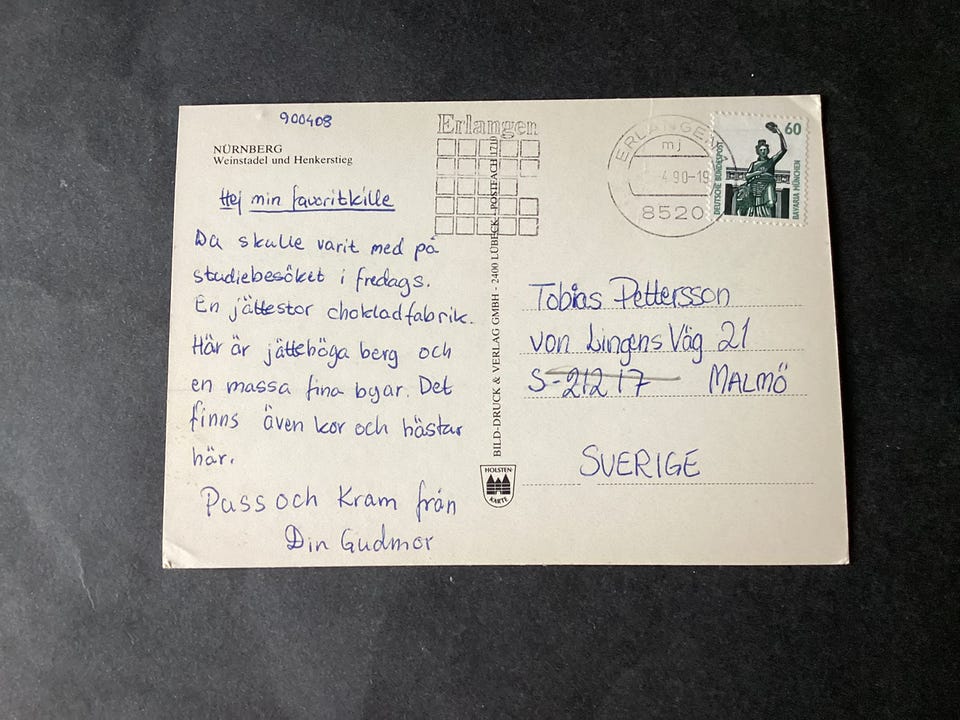 900408
NÜRNBERG
Weinstadel und Henkerstieg
Hej min favoritkille
Da skulle varit med på
studiebesöket i fredags.
En jättestor chokladfabrik.
Här är jättehöga berg och
en massa fina byar. Det
finns även kor och hästar
här.
Puss och Kram från
Din Gudmor
Erlangen
BILD-DRUCK & VERLAG GMBH - 2400 LÜBECK - POSTFACH 1710
HOLSTEN
KARTE
ERLANGEN
mj
4.90-19
8520
60
DEUTSCHE BUNDESPOST
BAVARIA MÜNCHEN
Tobias Pettersson
von Lingens Väg 21
S-21217 MALMÖ
SVERIGE